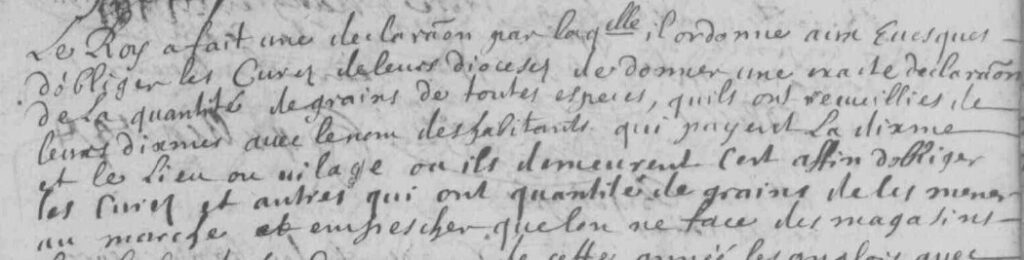 Le Roy a fait une declaraōn par laqelle il ordonne aux Evesques
d'obliger les Curez de leurs dioceses de donner une exacte declaraōn
de la quantité de grains de toutes especes, quils ont recueillies de
leurs dixmes avec le nom des habitants qui payent La dixme
et le Lieu ou vilage ou ils demeurent C'est affin dobliger
les Curez et autres qui ont quantité de grains de les mener
au marché et empescher que lon ne face des magasins
de cette année les anglois avec